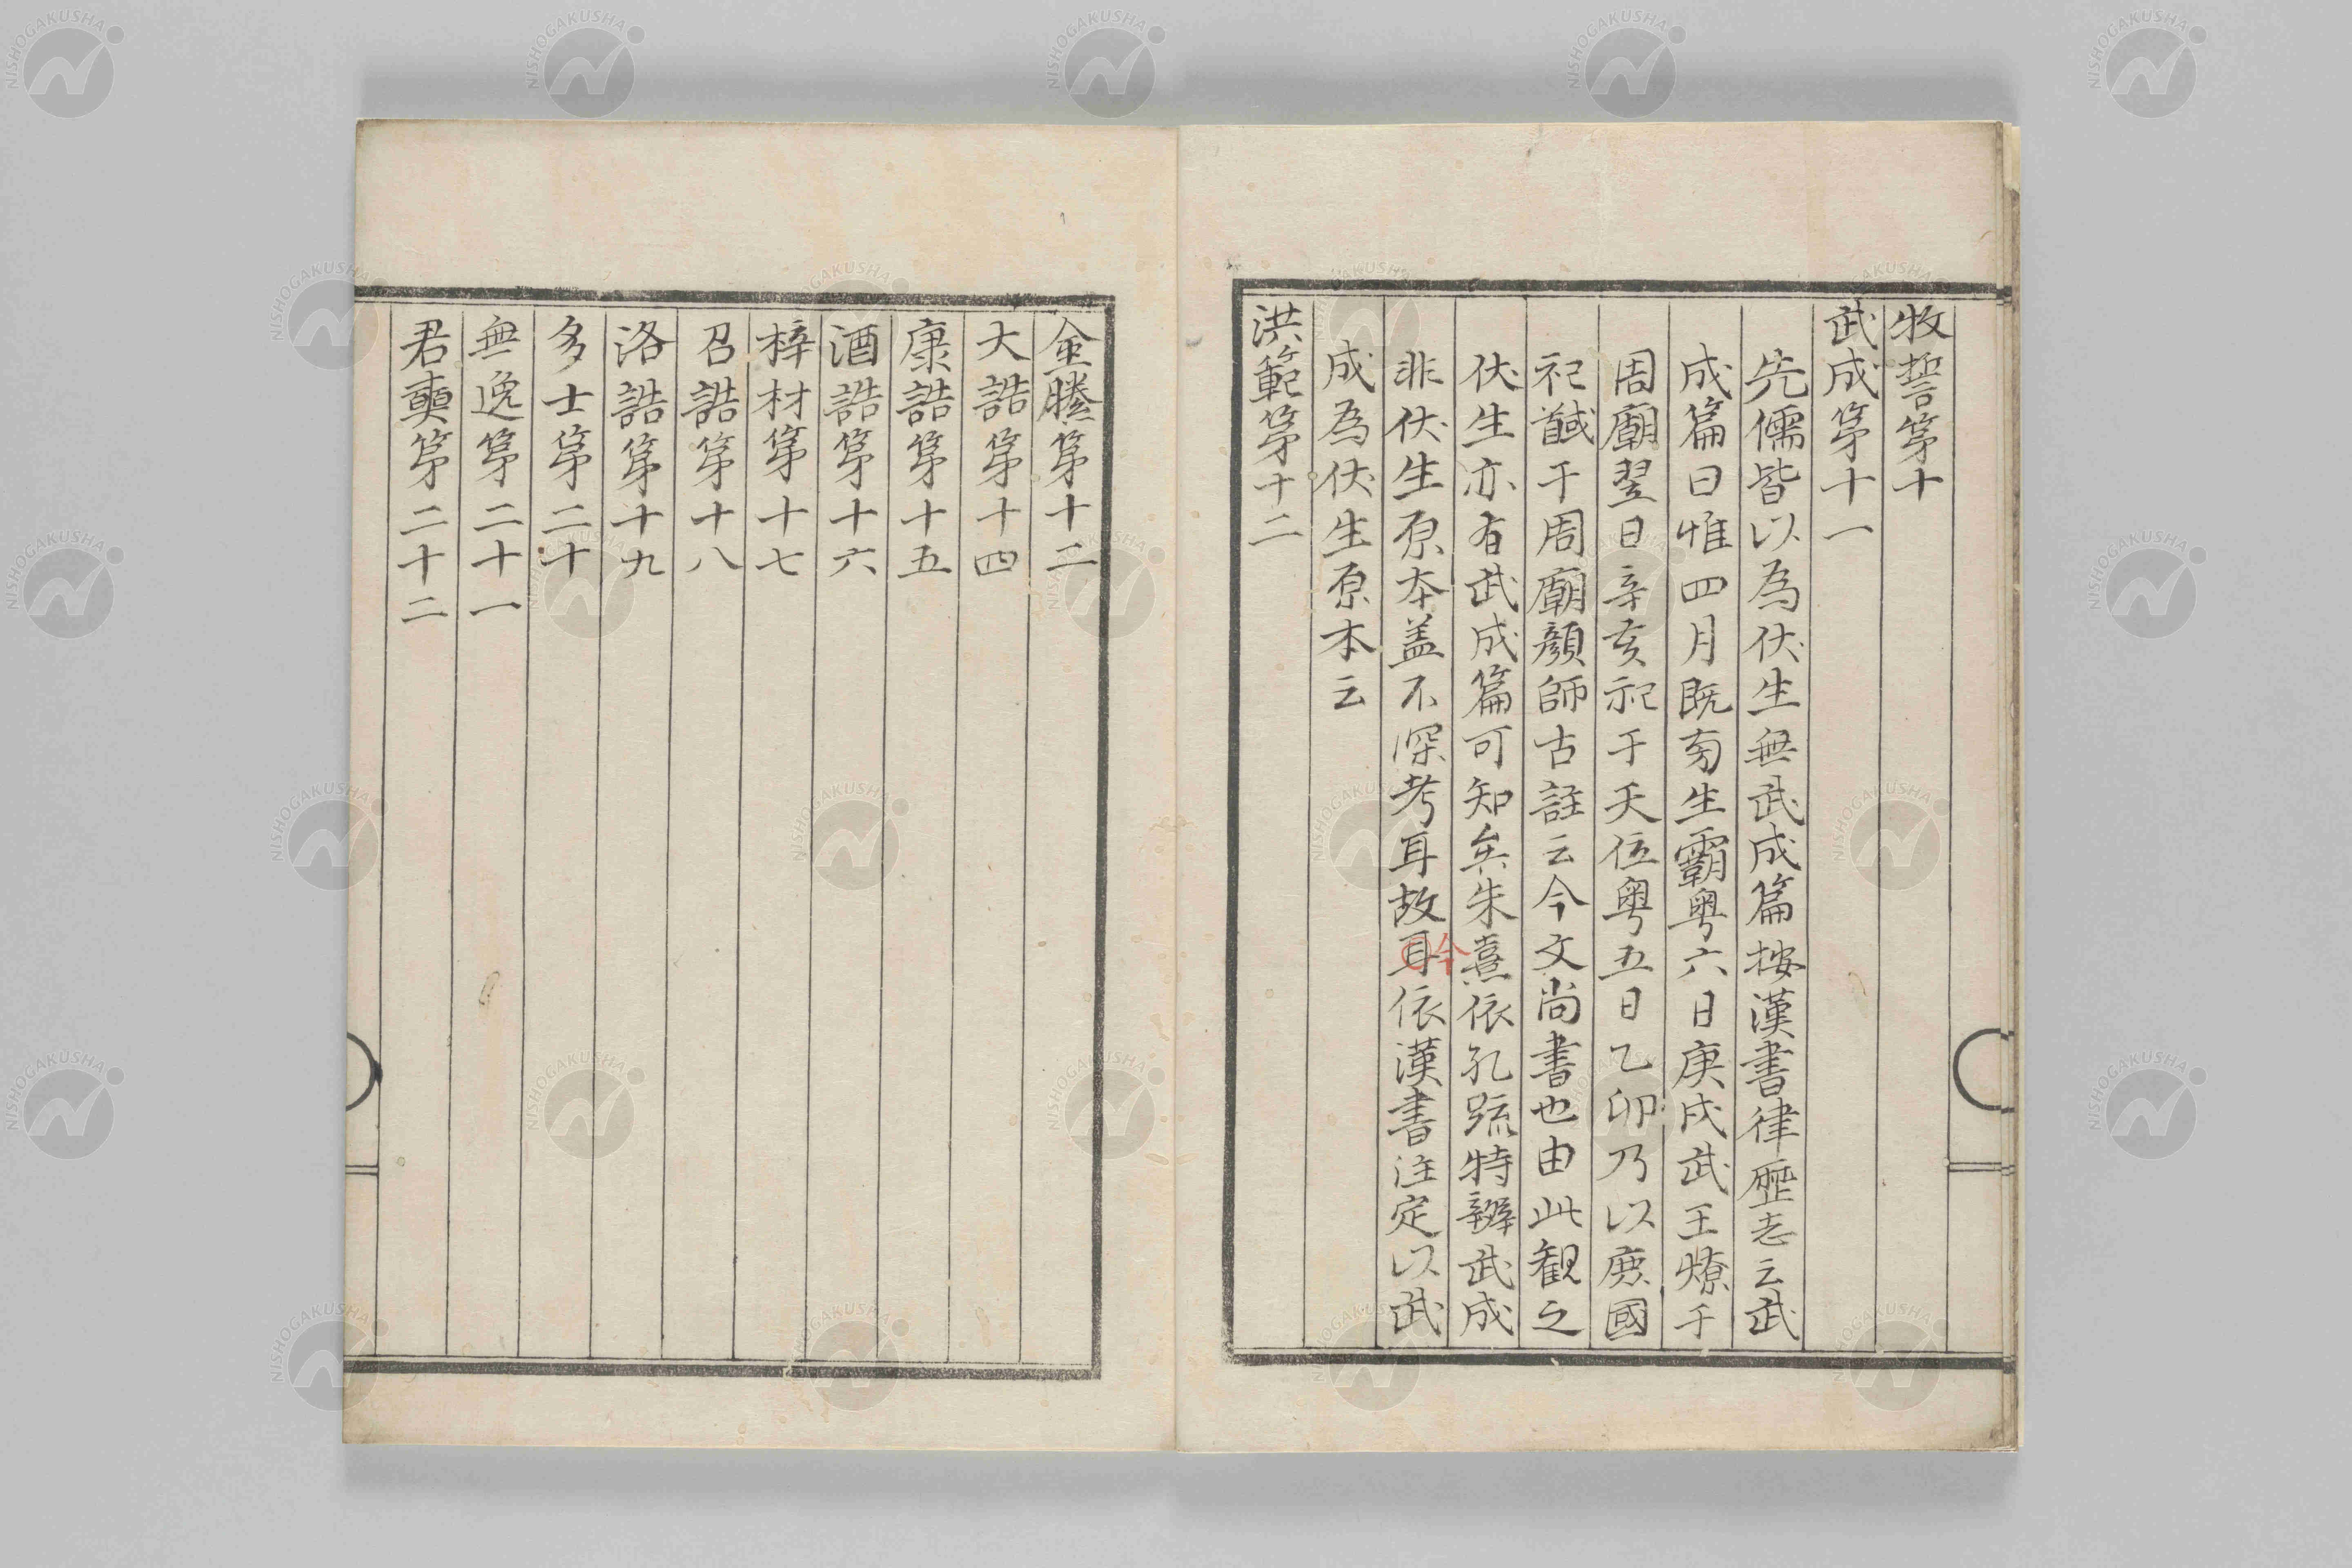 牧誓第十
武成第十一
先儒皆以為伏生無武成篇按漢書律歷志云武
成篇曰惟四月既旁生霸粤六日庚戌武王燎于
周廟翌日辛亥祀于天位粤五日乙卯乃以庶國
祀馘于周廟顏師古註云今文尚書也由此観之
伏生亦有武成篇可知矣朱熹依孔疏特辨武成
非伏生原本盖不深考耳故耳依漢書注定以武
今
成為伏生原本云
洪範第十二
金縢第十二
大誥第十四
康誥第十五
酒誥第十六
梓材第十七
召誥第十八
洛誥第十九
多士第二十
無逸第二十一
君奭第二十二
NISHOGAKUSHA